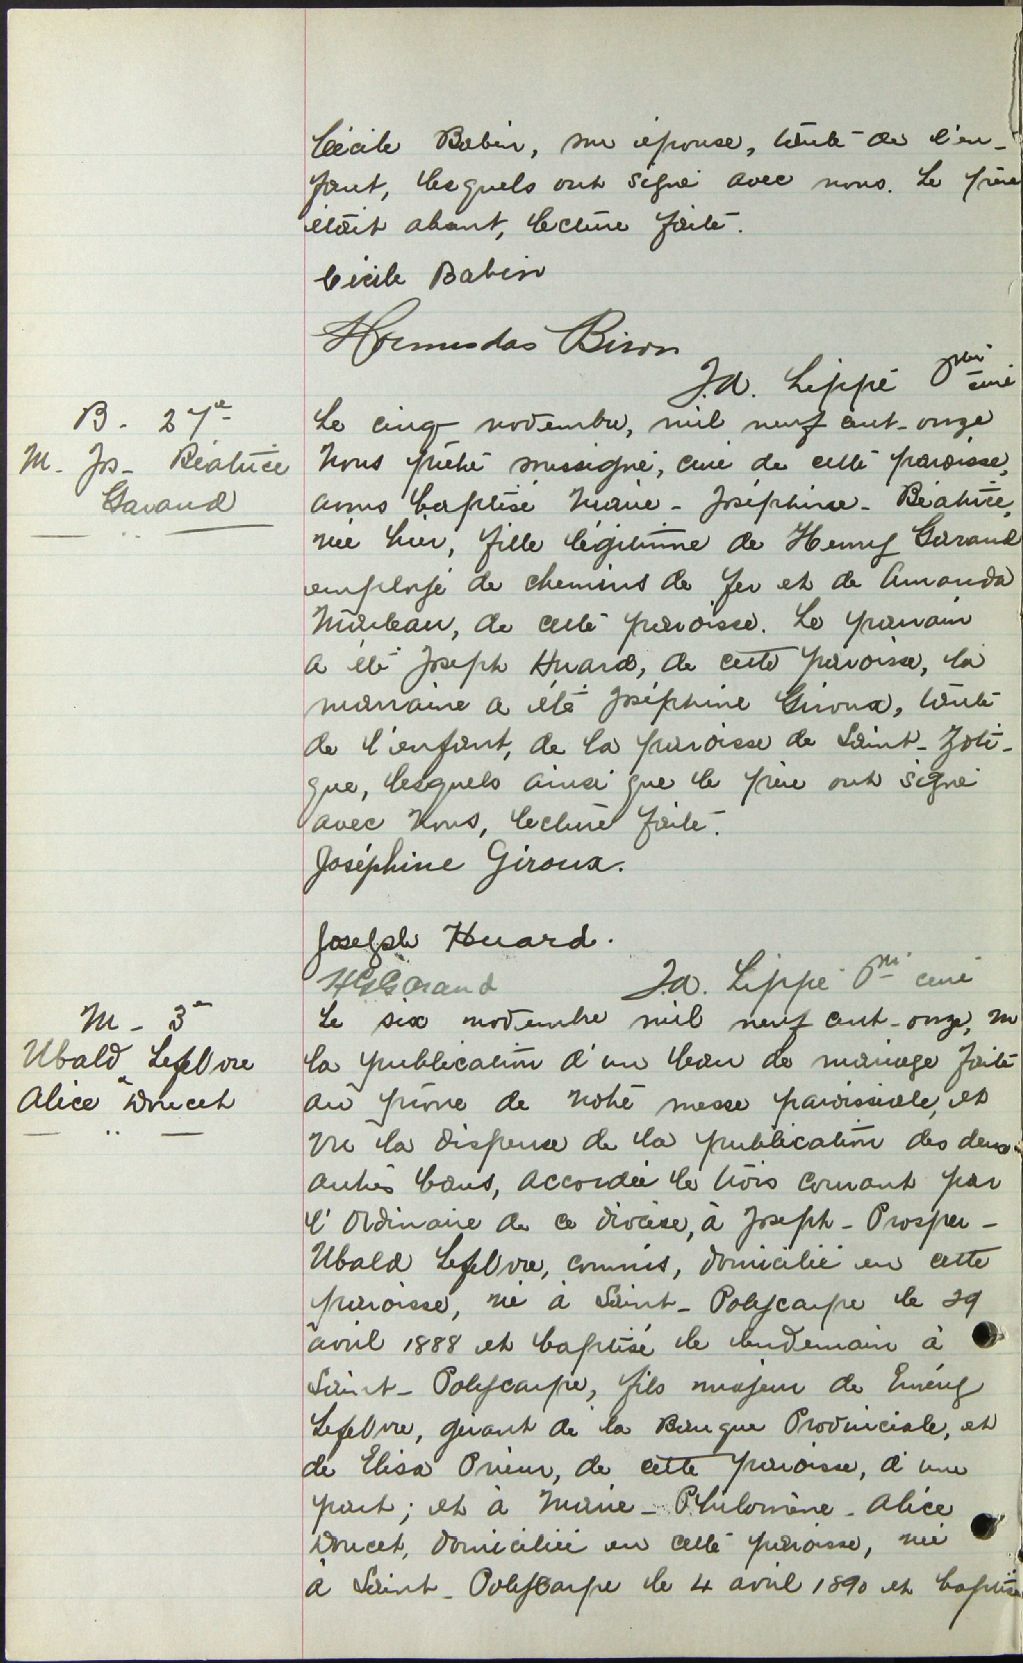 Cécile Babin, son épouse, tante de l'en-
fant, lesquels ont signé avec nous. Le père
était absent, lecture faite.
Cécile Babin
Hormisdas Biron
J.A. Lippé Ptre curé
B. 27e
M. Js. Béatrice
Garand
Le cinq novembre, mil neuf cent-onze
Nous prêtre soussigné, curé de cette paroisse,
avons baptisé Marie-Joséphine-Béatrice,
née hier, fille légitime de Henry Garand
employé de chemins de fer et de Amanda
Marleau, de cette paroisse. Le parrain
a été Joseph Huard, de cette paroisse, la
marraine a été Joséphine Giroux, tante
de l'enfant, de la paroisse de Saint-Zoti-
que, lesquels ainsi que le père ont signé
avec Nous, lecture faite.
Joséphine Giroux.
Joseph Huard.
H Garand J.A. Lippé Ptre curé
M - 3e
Ubald Lefebvre
&
Alice Doucet
Le six novembre mil neuf cent-onze, vu
la publication d'un ban de mariage faite
au prône de notre messe paroissiale, et
vu la dispense de la publication des deux
autres bans, accordée le trois courant par
l'Ordinaire de ce diocèse, à Joseph-Prosper-
Ubald Lefebvre, commis, domicilié en cette
paroisse, né à Saint-Polycarpe le 29
avril 1888 et baptisé le lendemain à
Saint-Polycarpe, fils majeur de Eméry
Lefebvre, gérant de la Banque Provinciale, et
de Elisa Prieur, de cette paroisse, d'une
part; et à Marie-Philomène-Alice
Doucet, domiciliée en cette paroisse, née
à Saint-Polycarpe le 4 avril 1890 et baptisée